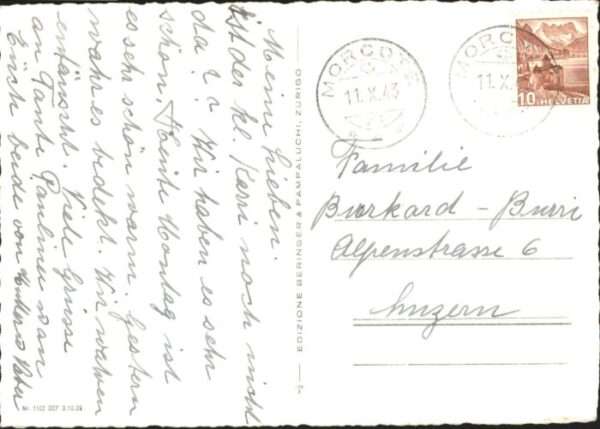 Meine Lieben.
Ist der kl. Karri noch nicht
da?? Wir haben es sehr
schön, Heute Montag ist
es sehr schön warm. Gestern
wahr es bedekt. Wir waren
enttäuscht. Viele Grüsse
an Tante Pauline u an
Euch beide von Mutter u Vater
Nr. 1102
EDIZIONE BERINGER & PAMPALUCHI, ZURIGO
MORCOTE
11.X.43
MORCOTE
11.X.
10 HELVETIA
Familie
Burkard - Burri
Alpenstrasse 6
Luzern